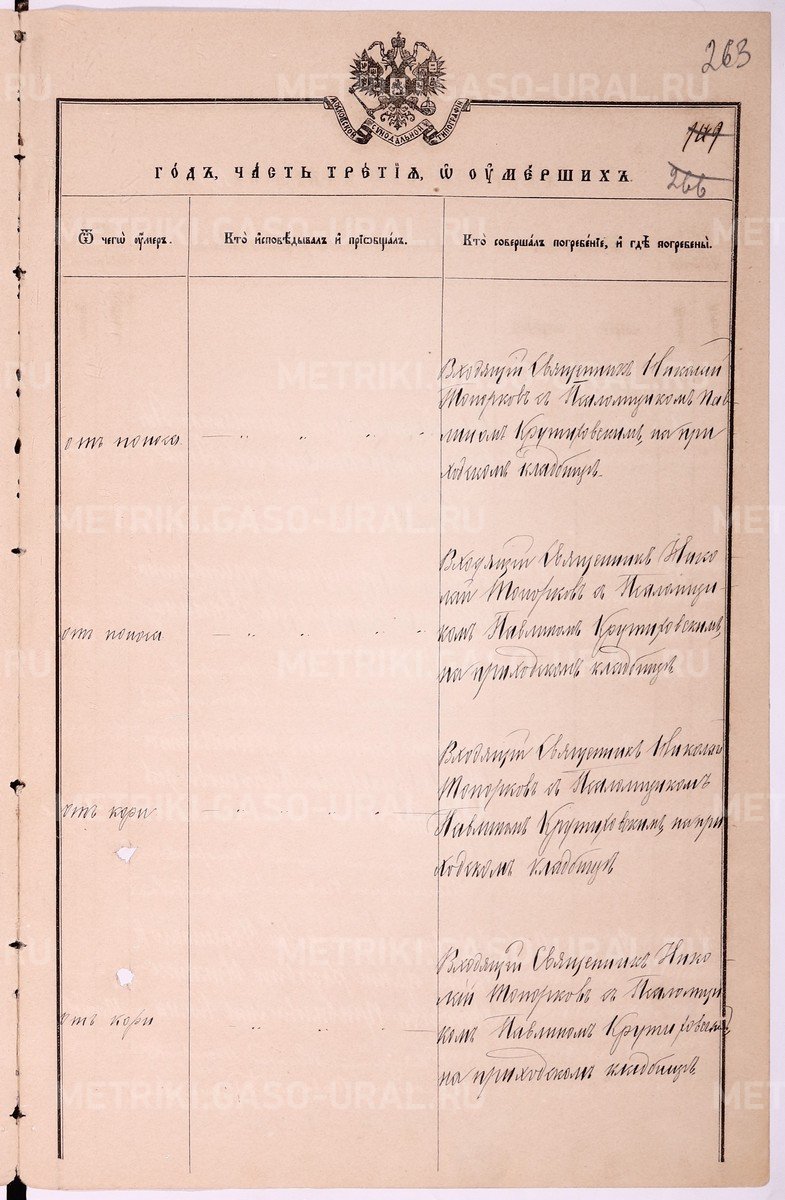 263
МОСКОВСКОЙ СѴНОДАЛЬНОЙ ТИПОГРАФІИ
149
266
ГО́ДЪ, ЧА́СТЬ ТРЕ́ТІѦ, Ѡ҆ ОУ҆МЕ́РШИХЪ.
Ѿ чегѡ̀ оу҆́меръ.
Кто̀ и҆сповѣ́дывалъ и҆ прїѡбща́лъ.
Кто̀ соверша́лъ погребе́нїе, и҆ гдѣ̀ погребены̀.
Входящій Священникъ Николай
Топорковъ съ Псаломщикомъ Пав-
отъ поноса
линомъ Крутиховскимъ, на при
ходскомъ кладбищѣ.
Входящій Священникъ Нико
лай Топорковъ съ Псаломщи-
отъ поноса
комъ Павлиномъ Крутиховскимъ,
на приходскомъ кладбищѣ
Входящій Священникъ Николай
Топорковъ съ Псаломщикомъ
отъ кори
Павлиномъ Крутиховскимъ, на при
ходскомъ кладбищѣ
Входящій Священникъ Нико
лай Топорковъ съ Псаломщи
отъ кори
комъ Павлиномъ Крутиховскимъ,
на приходскомъ кладбищѣ
METRIKI.GASO-URAL.RU